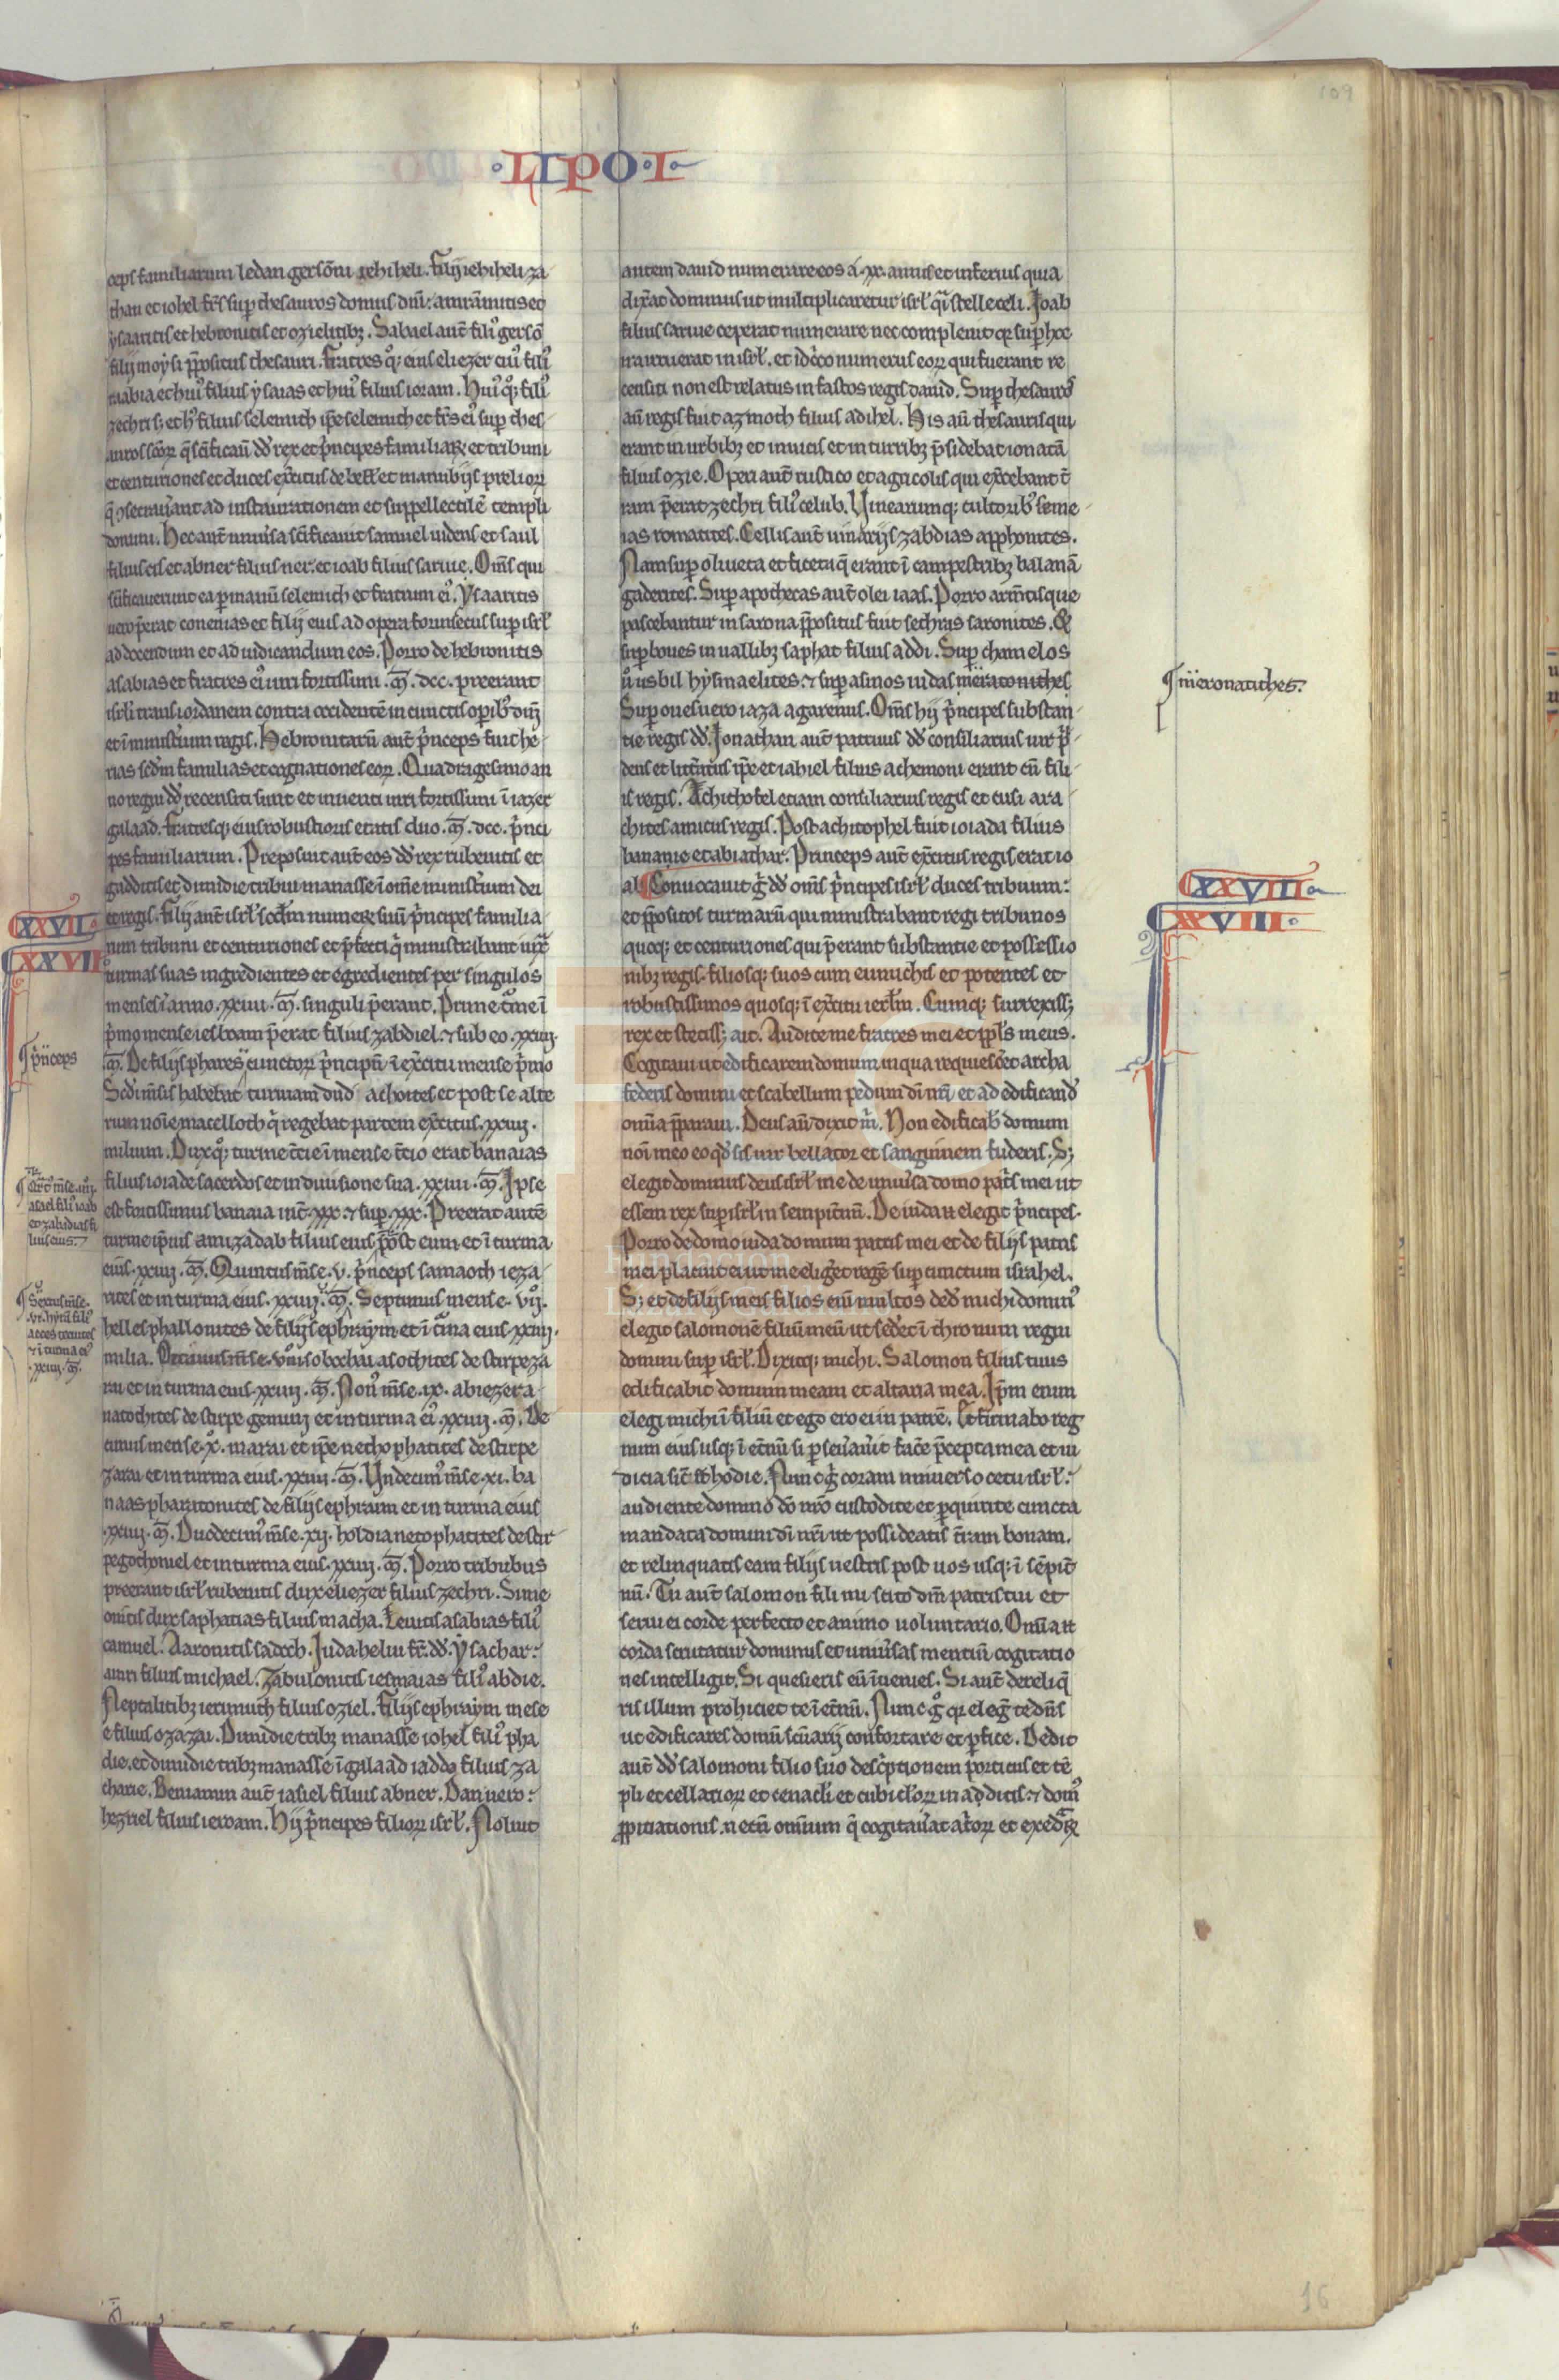 109
·LIPO·I·
ceps familiarum ledan gersōni iehiheli. Filij iehiheli za
than et iohel fr̄s sup thesauros domus dn̄i: amrāmitis et
ysaaritis et hebronitis et ozielitibꝫ. Sabael aut̄ filiꝰ gersō
filij moysi p̄positus thesauri. Fratres qͦꝫ eius eliezer cuiꝰ filiꝰ
raabia et huiꝰ filius ysaias et huiꝰ filius ioram. Huiꝰ qͦꝫ filiꝰ
zechri sꝫ et hꝰ filius selemith ip̄e selemith et fr̄s eiꝰ sup thes
auros scōꝝ q̄ sc̄ificauit dd̄ rex et p̄ncipes familiaꝝ et tribuni
et centuriones et duces exc̄itus de bell̄ et manubijs prelioꝝ
q̄ ꝯsecrauerant ad instaurationem et suppellectilē templi
domini. Hec aut̄ uniuersa sc̄ificauit samuel uidens et saul
filius cis et abner filius ner. et ioab filius saruie. Om̄s qui
sc̄ificauerunt ea p manū selemith et fratrum eiꝰ. Ysaaritis
uero p̄erat conenias et filij eius ad opera forinsecus sup isrl̄
ad docendum et ad iudicandum eos. Porro de hebronitis
asabias et fratres eiꝰ uiri fortissimi. ꝳ. dcc. preerant
isrl̄i trans iordanem contra occidentē in cunctis opibꝰ dn̄i
et ī ministerium regis. Hebronitarū aut̄ p̄nceps fuit he
rias scd̄m familias et cognationes eoꝝ. Quadragesimo an
no regni dd̄ recensiti sunt et inuenti uiri fortissimi ī iazer
galaad. fratresqꝫ eius robustioris etatis duo. ꝳ. dcc. p̄nci
pes familiarum. Preposuit aut̄ eos dd̄ rex rubenitis et
gadditis et dimidie tribui manasse ī om̄e ministerium dei
XXVII.
et regis. Filij aut̄ isrl̄ scd̄m numerꝝ suū p̄ncipes familia
rum tribuni et centuriones et p̄fecti q̄ ministrabant iuxᵃ
XXVII
turmas suas ingredientes et egredientes per singulos
menses ī anno. xxiiii. ꝳ. singuli p̄erant. Prime tͦme ī
p̄mo mense iesboam p̄erat filius zabdiel. ⁊ sub eo. xxiiii.
¶ p̄nceps
ꝳ. De filijs phares cunctoꝝ p̄ncipū ī exc̄itu mense p̄mo
Scd̄i m̄sis habebat turmam dudi achoites et post se alte
rum noīe macelloth q̄ regebat partem exc̄itus. xxiiii.
milium. Duxqͦꝫ turme t̄cie ī mense t̄cio erat banaias
filius ioiade sacerdos et in diuisione sua. xxiiii. ꝳ. Ipse
est fortissimus banaia int̄. xxx. ⁊ sup. xxx. Preerat autē
turme ipsius amizadab filius eius post eum et ī turma
eius. xxiiii. ꝳ. Quintus m̄se. v. p̄nceps samaoth ieza
rites et in turma eius. xxiiii. ꝳ. Septimus mense. vij.
¶ Sextus m̄se.
vi. hyra filiꝰ
acces tecuites
⁊ ī turma eiꝰ
xxiiii. ꝳ.
helles phallonites de filijs ephraym et ī tͦma eius xxiiii.
milia. Octauus m̄se. viii. sobochai asochites de stirpe za
rai et in turma eius. xxiiii. ꝳ. Nonꝰ m̄se. ix. abiezer a
natochites de stirpe gemini et in turma eiꝰ. xxiiii. ꝳ. De
cimus mense. x. marai et ip̄e nethophatites de stirpe
zarai et in turma eius. xxiiii. ꝳ. Undecimꝰ m̄se. xi. ba
naas pharatonites de filijs ephraim et in turma eius
xxiiii. ꝳ. Duodecimꝰ m̄se. xij. holdia netophatites de stir
pe gothoniel et in turma eius. xxiiii. ꝳ. Porro tribubus
preerant isrl̄ rubenitis dux eliezer filius zechri. Sime
onitis dux saphatias filius macha. Leuitis asabias filiꝰ
camuel. Aaronitis sadoch. Iuda heliu fr̄ dd̄. Ysachar:
amri filius michael. Zabulonitis iesmaias filiꝰ abdie.
Neptalitibꝫ ierimuth filius oziel. Filijs ephraym mese
e filius ozazai. Dimidie tribꝫ manasse iohel filiꝰ pha
die. et dimidie tribꝫ manasse ī galaad iaddo filius za
charie. Beniamin aut̄ iasiel filius abner. Dan uero:
hezriel filius ieroam. Hij p̄ncipes filioꝝ isrl̄. Noluit
autem dauid numerare eos a. xx. annis et inferius quia
dix̄at dominus ut multiplicaretur isrl̄ qͣi stelle celi. Ioab
filius saruie ceperat numerare nec compleuit qꝛ sup hoc
ira irruerat in isrl̄. et idc̄co numerus eoꝝ qui fuerant re
censiti non est relatus in fastos regis dauid. Sup thesauros
aū regis fuit azmoth filius adihel. His aū thesauris qui
erant in urbibꝫ et in uicis et in turribꝫ p̄sidebat ionatā
filius ozie. Operi aut̄ rustico et agricolis qui exc̄ebant t̄
ram p̄erat zechri filiꝰ celub. Uinearumqꝫ cultoribꝰ seme
ias romatites. Cellis aut̄ uinarijs zabdias apphonites.
Nam sup oliueta et ficeta q̄ erant ī campestribꝫ balanā
gaderites. Sup apothecas aut̄ olei ioas. Porro arm̄tis que
pascebantur in sarona p̄positus fuit sethras saronites. Et
sup boues in uallibꝫ saphat filius addi. Sup chamelos
uͦ usbil hysmaelites. ⁊ sup asinos iudas meratonithes
¶ meronatithes.
Sup oues uero iaza agarenus. Om̄s hij p̄ncipes substan
tie regis dd̄. Ionathan aut̄ patruus dd̄ consiliarius uir p̄
dens et litt̄atus ip̄e et iahiel filius achemoni erant cū fili
is regis. Achithofel etiam consiliarius regis et cusi ara
chites amicus regis. Post achitophel fuit ioiada filius
bananie et abiathar. Princeps aut̄ exc̄itus regis erat io
XXVIII
al Conuocauit gͥ dd̄ om̄s p̄ncipes isrl̄ duces tribuum:
XXVIII.
et p̄positos turmarū qui ministrabant regi tribunos
quoqꝫ et centuriones qui p̄erant substantie et possessio
nibꝫ regis. filiosqꝫ suos cum eunuchis et potentes et
robustissimos quosqꝫ ī exc̄itu ierl̄m. Cumqꝫ surrexissꝫ
rex et stetissꝫ ait. Audite me fratres mei et ppl̄s meus.
Cogitaui ut edificarem domum in qua requiesc̄et archa
federis domini et scabellum pedum dī nr̄i et ad edificand̄
omīa p̄paraui. Deus aū dixit m̄. Non edificab̄ domum
noī meo eo qd̄ sis uir bellator et sanguinem fuderis. Sꝫ
elegit dominus deus isrl̄ me de uniuersa domo pat̄s mei ut
essem rex sup isrl̄ in sempit̄nū. De iuda eī elegit p̄ncipes.
Porro de domo iuda domum patris mei et de filijs patris
mei placuit ei ut me eliḡet regē sup cunctum israhel.
Sꝫ et de filijs meis filios eī multos ded̄ michi dominꝰ
elegit salomonē filiū meū ut sed̄et ī throno regni
domini sup isrl̄. Dixitqꝫ michi. Salomon filius tuus
edificabit domum meam et altaria mea. Ip̄m enim
elegi michi ī filiū et ego ero ei in patrē. Et firmabo reg
num eius usqꝫ ī et̄nū si pseuerauerit fac̄e p̄cepta mea et iu
dicia sic̄ et hodie. Nunc gͥ coram uniuerso cetu isrl̄:
audiente domino dō nr̄o custodite et pquirite cuncta
mandata domini dī nr̄i ut possideatis t̄ram bonam.
et relinquatis eam filijs uestris post uos usqꝫ ī sēpit̄
nū. Tu aut̄ salomon fili mi scito dm̄ patris tui et
serui ei corde perfecto et animo uoluntario. Omīa eī
corda scrutatur dominus et uniuersas mentiū cogitatio
nes intelligit. Si quesieris eū īuenies. Si aut̄ dereliq̄
ris illum prohiciet te ī et̄nū. Nunc gͦ qꝛ eleḡ te dn̄s
ut edificares domū sc̄uarij confortare et pfice. Dedit
aut̄ dd̄ salomoni filio suo desc̄ptionem porticus et tē
pli et cellarioꝝ et cenacl̄i et cubicl̄oꝝ in additis ⁊ domꝰ
p̄piciationis. necū omnium q̄ cogitauerat at̄oꝝ et exedraꝝ
16